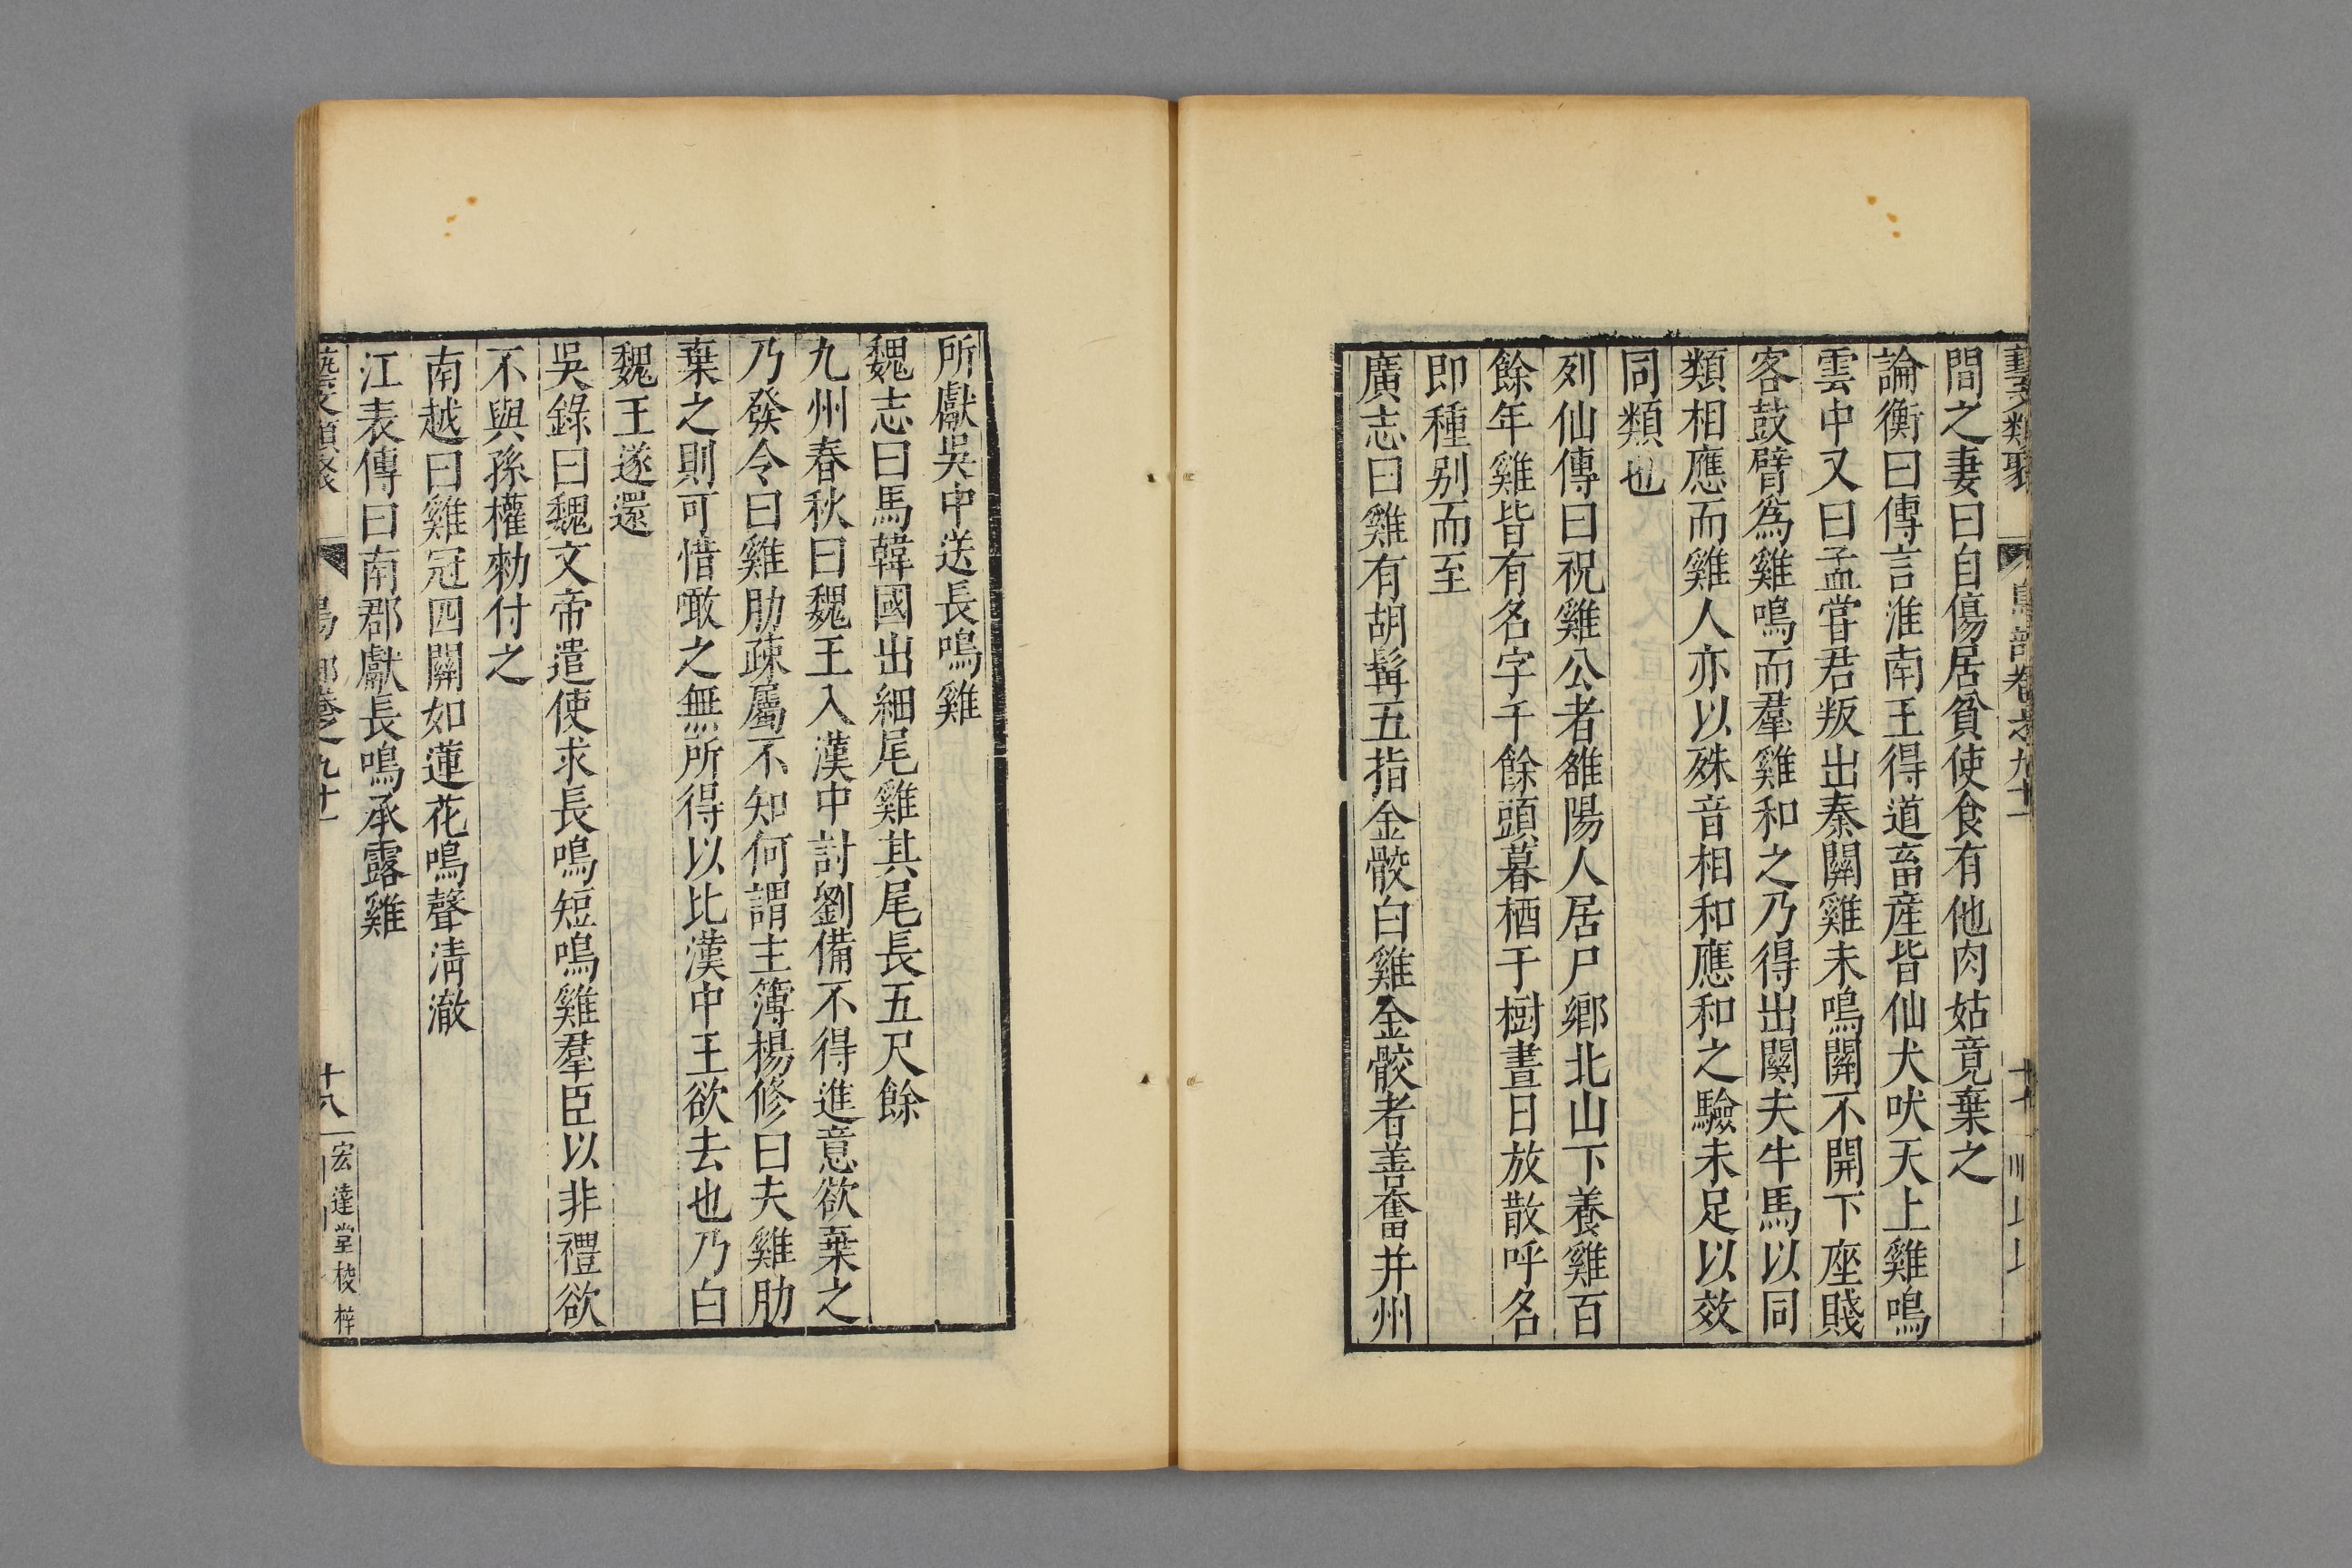 藝文類聚 鳥部卷之九十一 十七
間之妻曰自傷居貧使食有他肉姑竟棄之
論衡曰傳言淮南王得道畜産皆仙犬吠天上雞鳴
雲中又曰孟甞君叛出秦關雞未鳴關不開下座賤
客鼓臂爲雞鳴而羣雞和之乃得出關夫牛馬以同
類相應而雞人亦以殊音相和應和之驗未足以效
同類也
列仙傳曰祝雞公者雒陽人居尸鄉北山下養雞百
餘年雞皆有名字千餘頭暮栖于樹晝日放散呼名
即種别而至
廣志曰雞有胡髯五指金骹白雞金骹者善奮并州
所獻吳中送長鳴雞
魏志曰馬韓國出細尾雞其尾長五尺餘
九州春秋曰魏王入漢中討劉備不得進意欲棄之
乃發令曰雞肋疎屬不知何謂主簿楊修曰夫雞肋
棄之則可惜噉之無所得以比漢中王欲去也乃白
魏王遂還
吳錄曰魏文帝遣使求長鳴短鳴雞羣臣以非禮欲
不與孫權勑付之
南越曰雞冠四開如蓮花鳴聲清澈
江表傳曰南郡獻長鳴承露雞
藝文類聚 鳥部卷之九十一 十八 宏達堂校梓